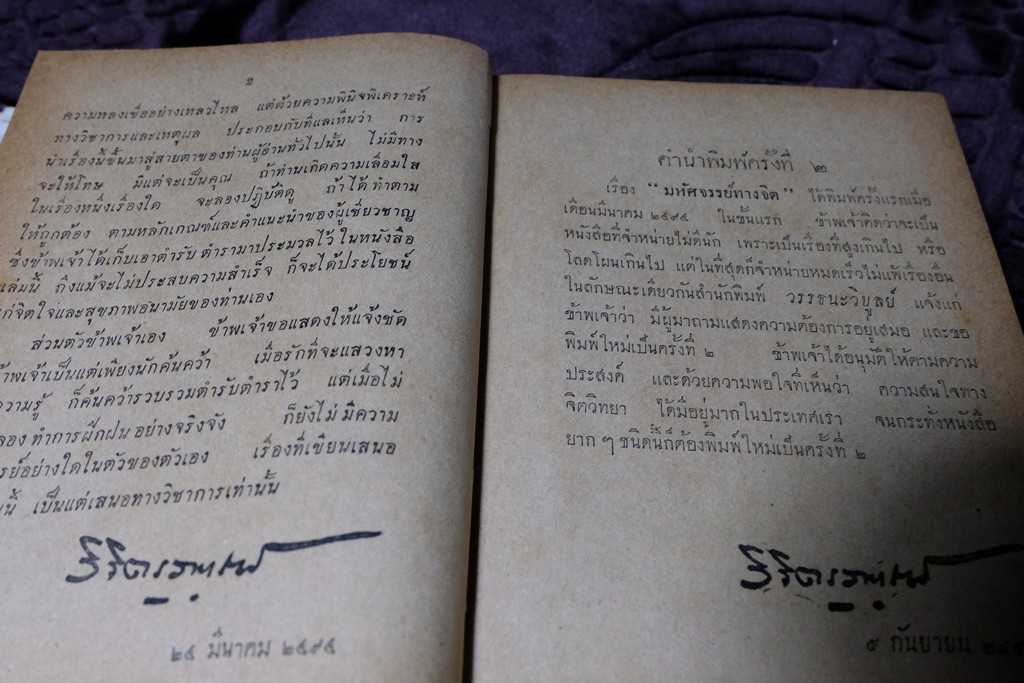 ๒
ความหลงเชื่ออย่างเหลวไหล แต่ด้วยความพินิจพิเคราะห์
ทางวิชาการและเหตุผล ประกอบกับที่แลเห็นว่า การ
นำเรื่องนี้ขึ้นมาสู่สายตาของท่านผู้อ่านทั่วไปนั้น ไม่มีทาง
จะให้โทษ มีแต่จะเป็นคุณ ถ้าท่านเกิดความเลื่อมใส
ในเรื่องหนึ่งเรื่องใด จะลองปฏิบัติดู ถ้าได้ทำตาม
ให้ถูกต้อง ตามหลักเกณฑ์และคำแนะนำของผู้เชี่ยวชาญ
ซึ่งข้าพเจ้าได้เก็บเอาตำรับตำรามาประมวลไว้ในหนังสือ
เล่มนี้ ถึงแม้จะไม่ประสบความสำเร็จ ก็จะได้ประโยชน์
จิตใจและสุขภาพอนามัยของท่านเอง
ส่วนตัวข้าพเจ้าเอง ข้าพเจ้าขอแสดงให้แจ้งชัด
าพเจ้าเป็นแต่เพียงนักค้นคว้า เมื่อรักที่จะแสวงหา
วามรู้ ก็ค้นคว้ารวบรวมตำรับตำราไว้ แต่เมื่อไม่
ลอง ทำการฝึกฝนอย่างจริงจัง ก็ยังไม่มีความ
รย์อย่างใดในตัวของตัวเอง เรื่องที่เขียนเสนอ
นี้ เป็นแต่เสนอทางวิชาการเท่านั้น
๒๕ มีนาคม ๒๔๙๔
คำนำพิมพ์ครั้งที่ ๒
เรื่อง “มหัศจรรย์ทางจิต” ได้พิมพ์ครั้งแรกเมื่อ
เดือนมีนาคม ๒๔๙๔ ในชั้นแรก ข้าพเจ้าคิดว่าจะเป็น
หนังสือที่จำหน่ายไม่ดีนัก เพราะเป็นเรื่องที่สูงเกินไป หรือ
โลดโผนเกินไป แต่ในที่สุดก็จำหน่ายหมดเร็วไม่แพ้เรื่องอื่น
ในลักษณะเดียวกันสำนักพิมพ์ วรรธนะวิบูลย์ แจ้งแก่
ข้าพเจ้าว่า มีผู้มาถามแสดงความต้องการอยู่เสมอ และขอ
พิมพ์ใหม่เป็นครั้งที่ ๒ ข้าพเจ้าได้อนุมัติให้ตามความ
ประสงค์ และด้วยความพอใจที่เห็นว่า ความสนใจทาง
จิตวิทยา ได้มีอยู่มากในประเทศเรา จนกระทั่งหนังสือ
ยาก ๆ ชนิดนี้ก็ต้องพิมพ์ใหม่เป็นครั้งที่ ๒
๙ กันยายน